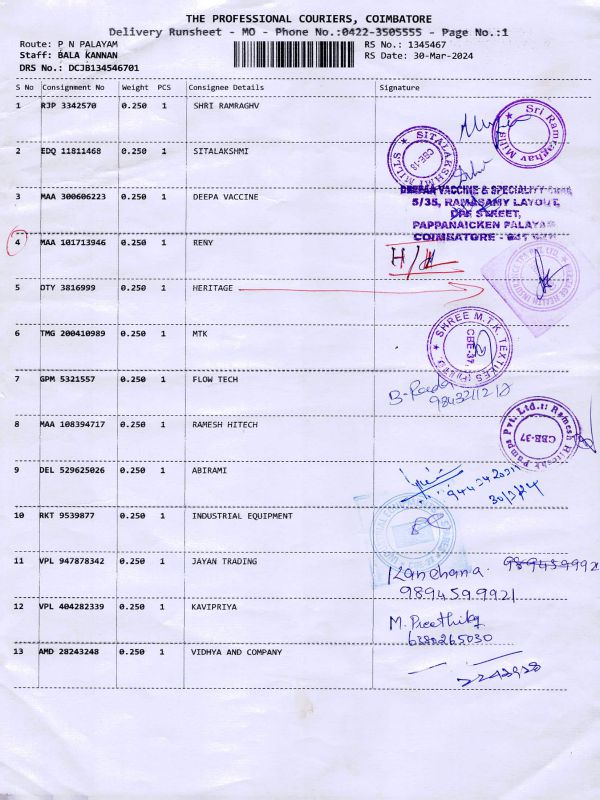 THE PROFESSIONAL COURIERS, COIMBATORE
Delivery Runsheet - MO - Phone No.:0422-3505555 - Page No.:1
Route: P N PALAYAM
RS No.: 1345467
Staff: BALA KANNAN
RS Date: 30-Mar-2024
DRS No.: DCJB134546701
S No Consignment No Weight PCS Consignee Details Signature
1 RJP 3342570 0.250 1 SHRI RAMRAGHV
Sri Ramraghav Mills
2 EDQ 11811468 0.250 1 SITALAKSHMI
SITALAKSHMI MILLS
CBE-18
3 MAA 300606223 0.250 1 DEEPA VACCINE
DEEPAA VACCINE & SPECIALITY
5/35, RAMASAMY LAYOUT,
STREET,
PAPPANAICKEN PALAYAM
COIMBATORE -
4 MAA 101713946 0.250 1 RENY
5 DTY 3816999 0.250 1 HERITAGE
6 TMG 200410989 0.250 1 MTK
SHREE M.T.K. TEXTILES (P) LTD
CBE-37.
7 GPM 5321557 0.250 1 FLOW TECH
8 MAA 108394717 0.250 1 RAMESH HITECH
Ramesh Hitech Pumps Pvt. Ltd.
CBE-37
9 DEL 529625026 0.250 1 ABIRAMI
30/3/24
10 RKT 9539877 0.250 1 INDUSTRIAL EQUIPMENT
11 VPL 947878342 0.250 1 JAYAN TRADING
Kanchana.
9894599921
12 VPL 404282339 0.250 1 KAVIPRIYA
M. Preethika
6380265030
13 AMD 28243248 0.250 1 VIDHYA AND COMPANY